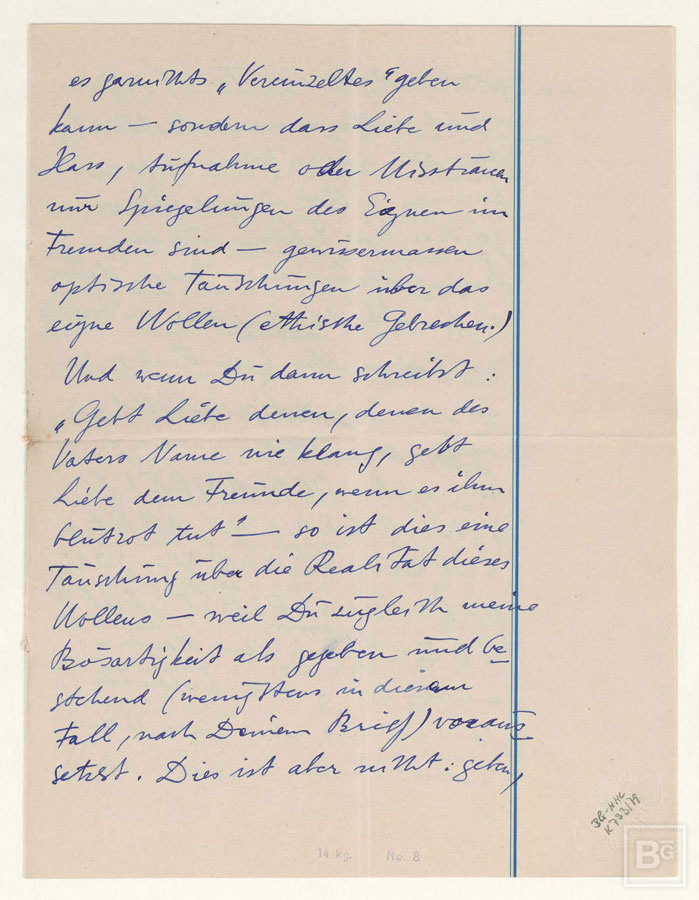 es garnichts „Vereinzeltes“ geben
kann — sondern dass Liebe und
Hass, Aufnahme oder Misstrauen
nur Spiegelungen des Eignen im
Fremden sind — gewissermassen
optische Täuschungen über das
eigne Wollen (ethische Gebrechen.)
Und wenn Du dann schreibst:
„Gebt Liebe denen, denen des
Vaters Name nie klang, gebt
Liebe dem Freunde, wenn es ihm
blutrot tut“ — so ist dies eine
Täuschung über die Realität dieses
Wollens — weil Du zugleich meine
Bösartigkeit als gegeben und be-
stehend (wenigstens in diesem
Fall, nach Deinem Brief) voraus-
setzst. Dies ist aber nicht: geben,
BG-HHC
K 733/79
14 kg. No. 8
BG